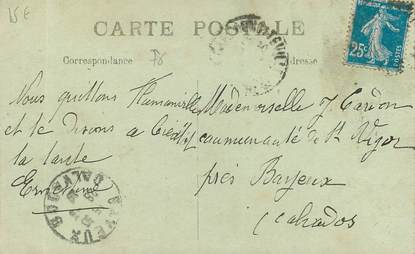 15 €
CARTE POSTALE
Correspondance
25c
POSTES
Nous quittons
et te disons à
ta tante
Ernestine
Mademoiselle J. Cardon
communauté de St Vigor
près Bayeux
Calvados
BAYEUX CALVADOS